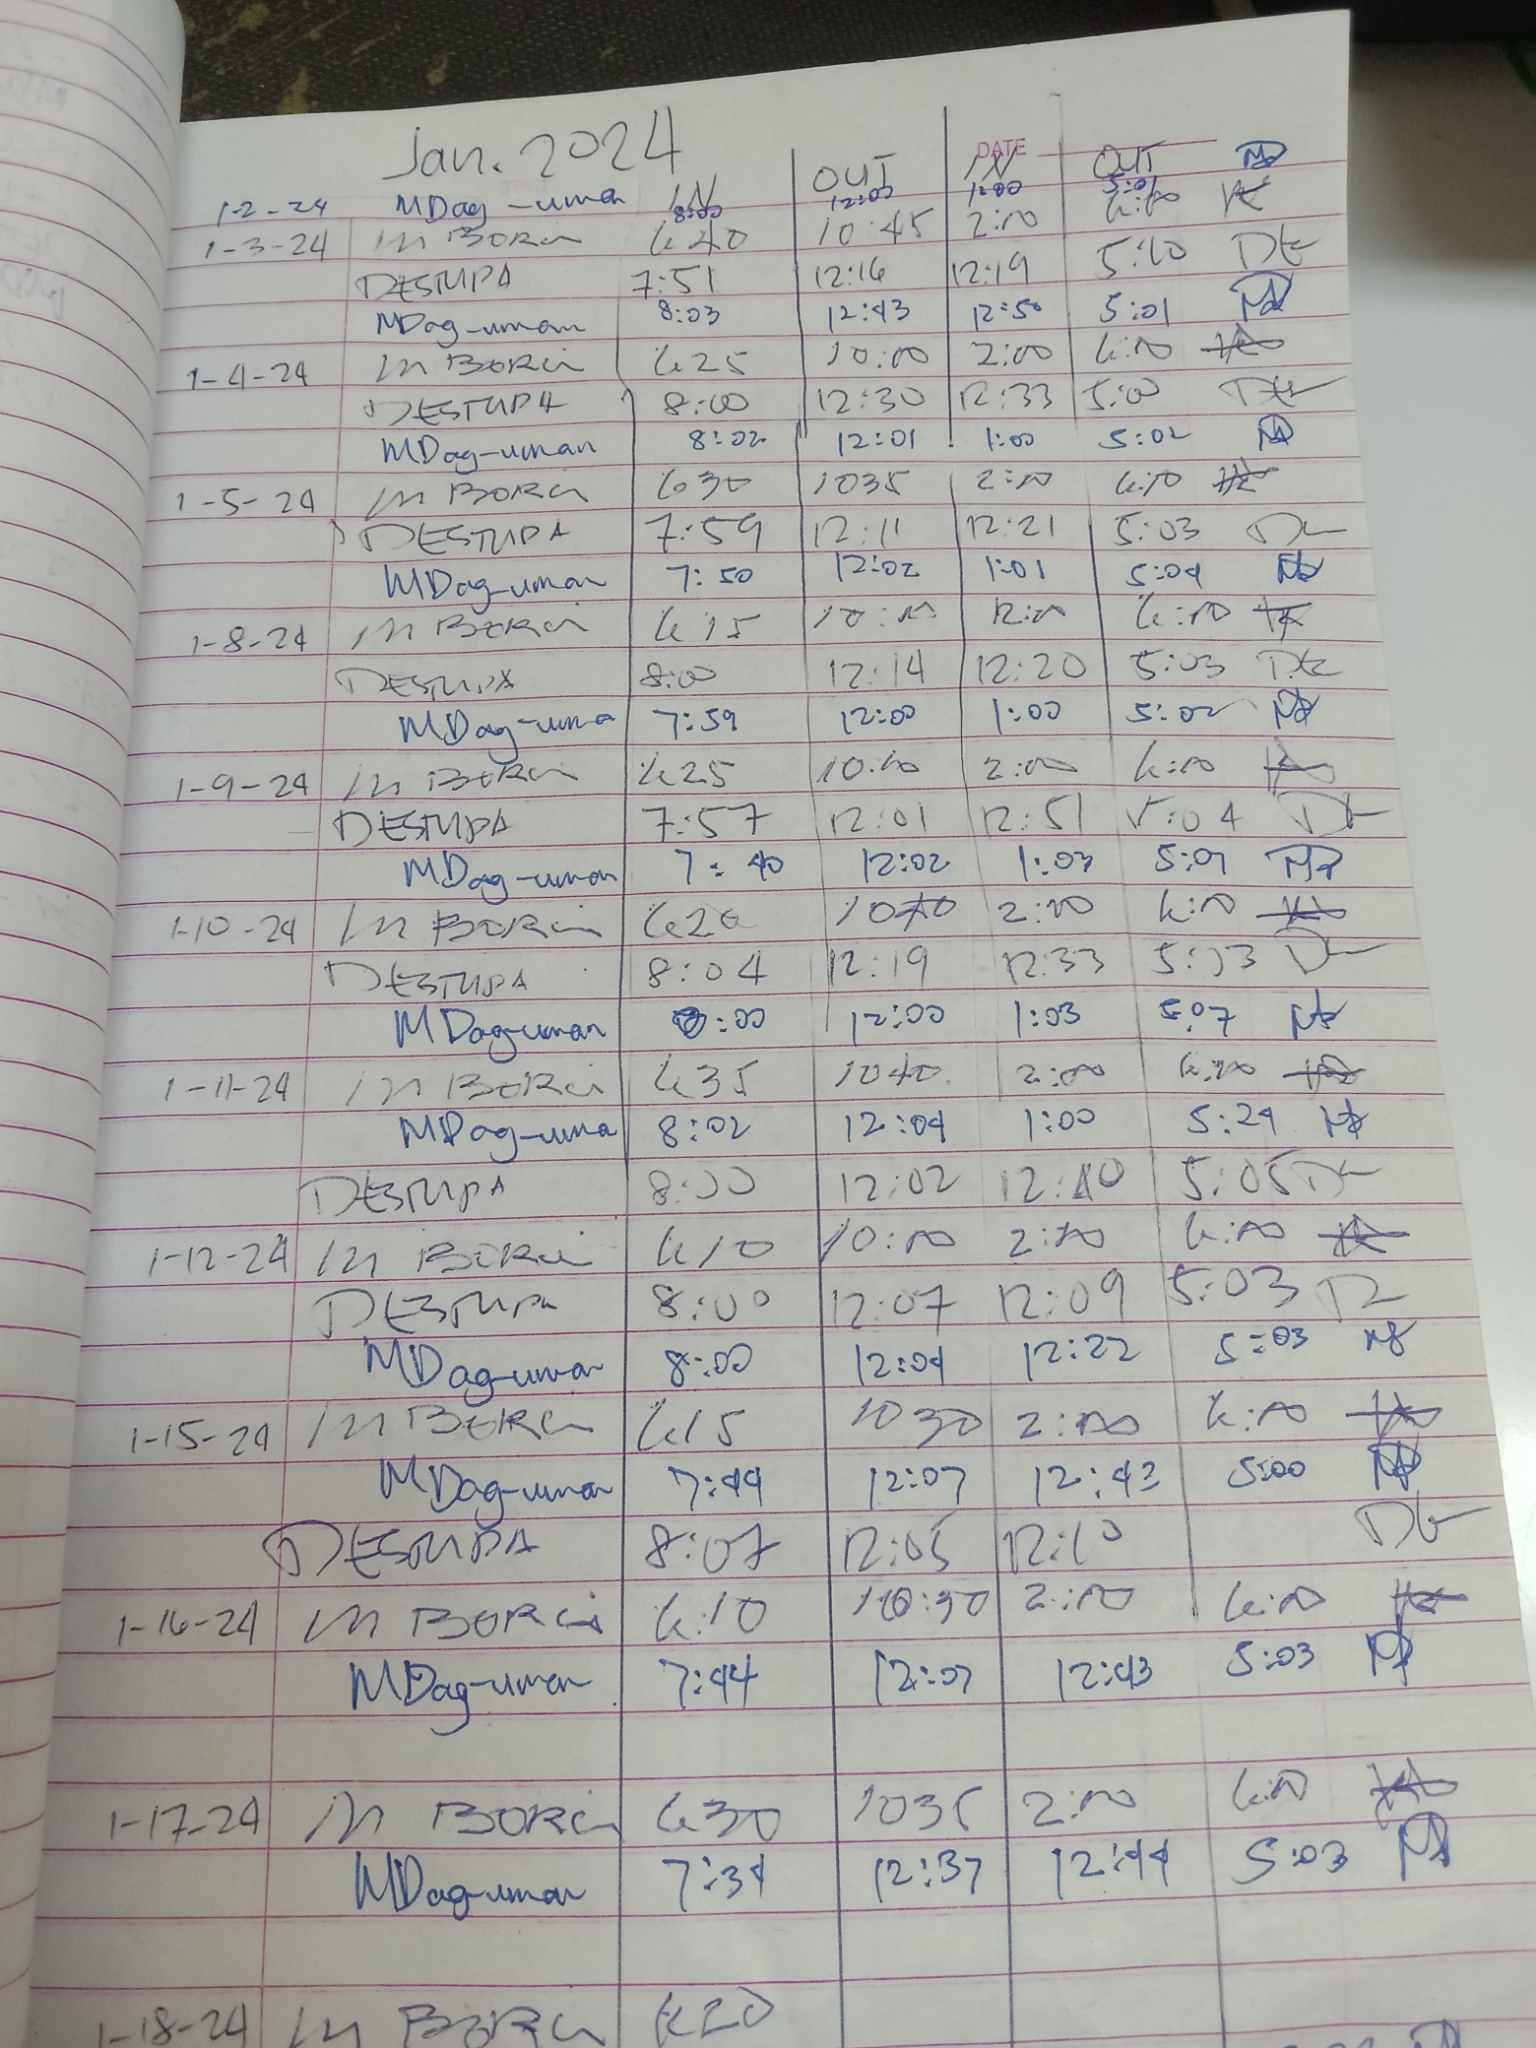 Jan. 2024
DATE
IN OUT IN OUT
1-2-24 MDag-uman 8:00 12:00 1:00 5:01
1-3-24 M BORCI 6:40 10:45 2:00 6:00
DESTUPA 7:51 12:16 12:19 5:10 DE
MDag-uman 8:03 12:43 12:50 5:01 MD
1-4-24 M BORCI 625 10:00 2:00 6:00
DESTUPA 8:00 12:30 12:33 5:00 DE
MDag-uman 8:02 12:01 1:00 5:02 MD
1-5-24 M BORCI 630 1035 2:00 6:00
DESTUPA 7:59 12:11 12:21 5:03
MDag-uman 7:50 12:02 1:01 5:04
1-8-24 M BORCI 615 10:00 12:00 6:00
DESTUPA 8:00 12:14 12:20 5:03 DE
MDag-uma 7:59 12:00 1:00 5:02
1-9-24 M BORCI 625 10:00 2:00 6:00
DESTUPA 7:57 12:01 12:51 5:04
MDag-uman 7:40 12:02 1:03 5:07 MD
1-10-24 M BORCI 620 2:00 6:00
DESTUPA 8:04 12:19 12:33 5:13
MDag-uman 8:00 12:00 1:03 5:07
1-11-24 M BORCI 635 1040 2:00 6:00
MDag-uma 8:02 12:04 1:00 5:24
DESTUPA 8:00 12:02 12:40 5:05
1-12-24 M BORCI 610 10:00 2:00 6:00
DESTUPA 8:00 12:07 12:09 5:03
MDag-uman 8:00 12:04 12:22 5:03
1-15-24 M BORCI 615 1030 2:00 6:00
MDag-uman 7:44 12:07 12:43 5:00
DESTUPA 8:07 12:05 12:10 DE
1-16-24 M BORCI 6:10 10:30 2:00 6:00
MDag-uman 7:44 12:07 12:43 5:03
1-17-24 M BORCI 630 1035 2:00 6:00
MDag-uman 7:34 12:37 12:44 5:03
1-18-24 M BORCI 620